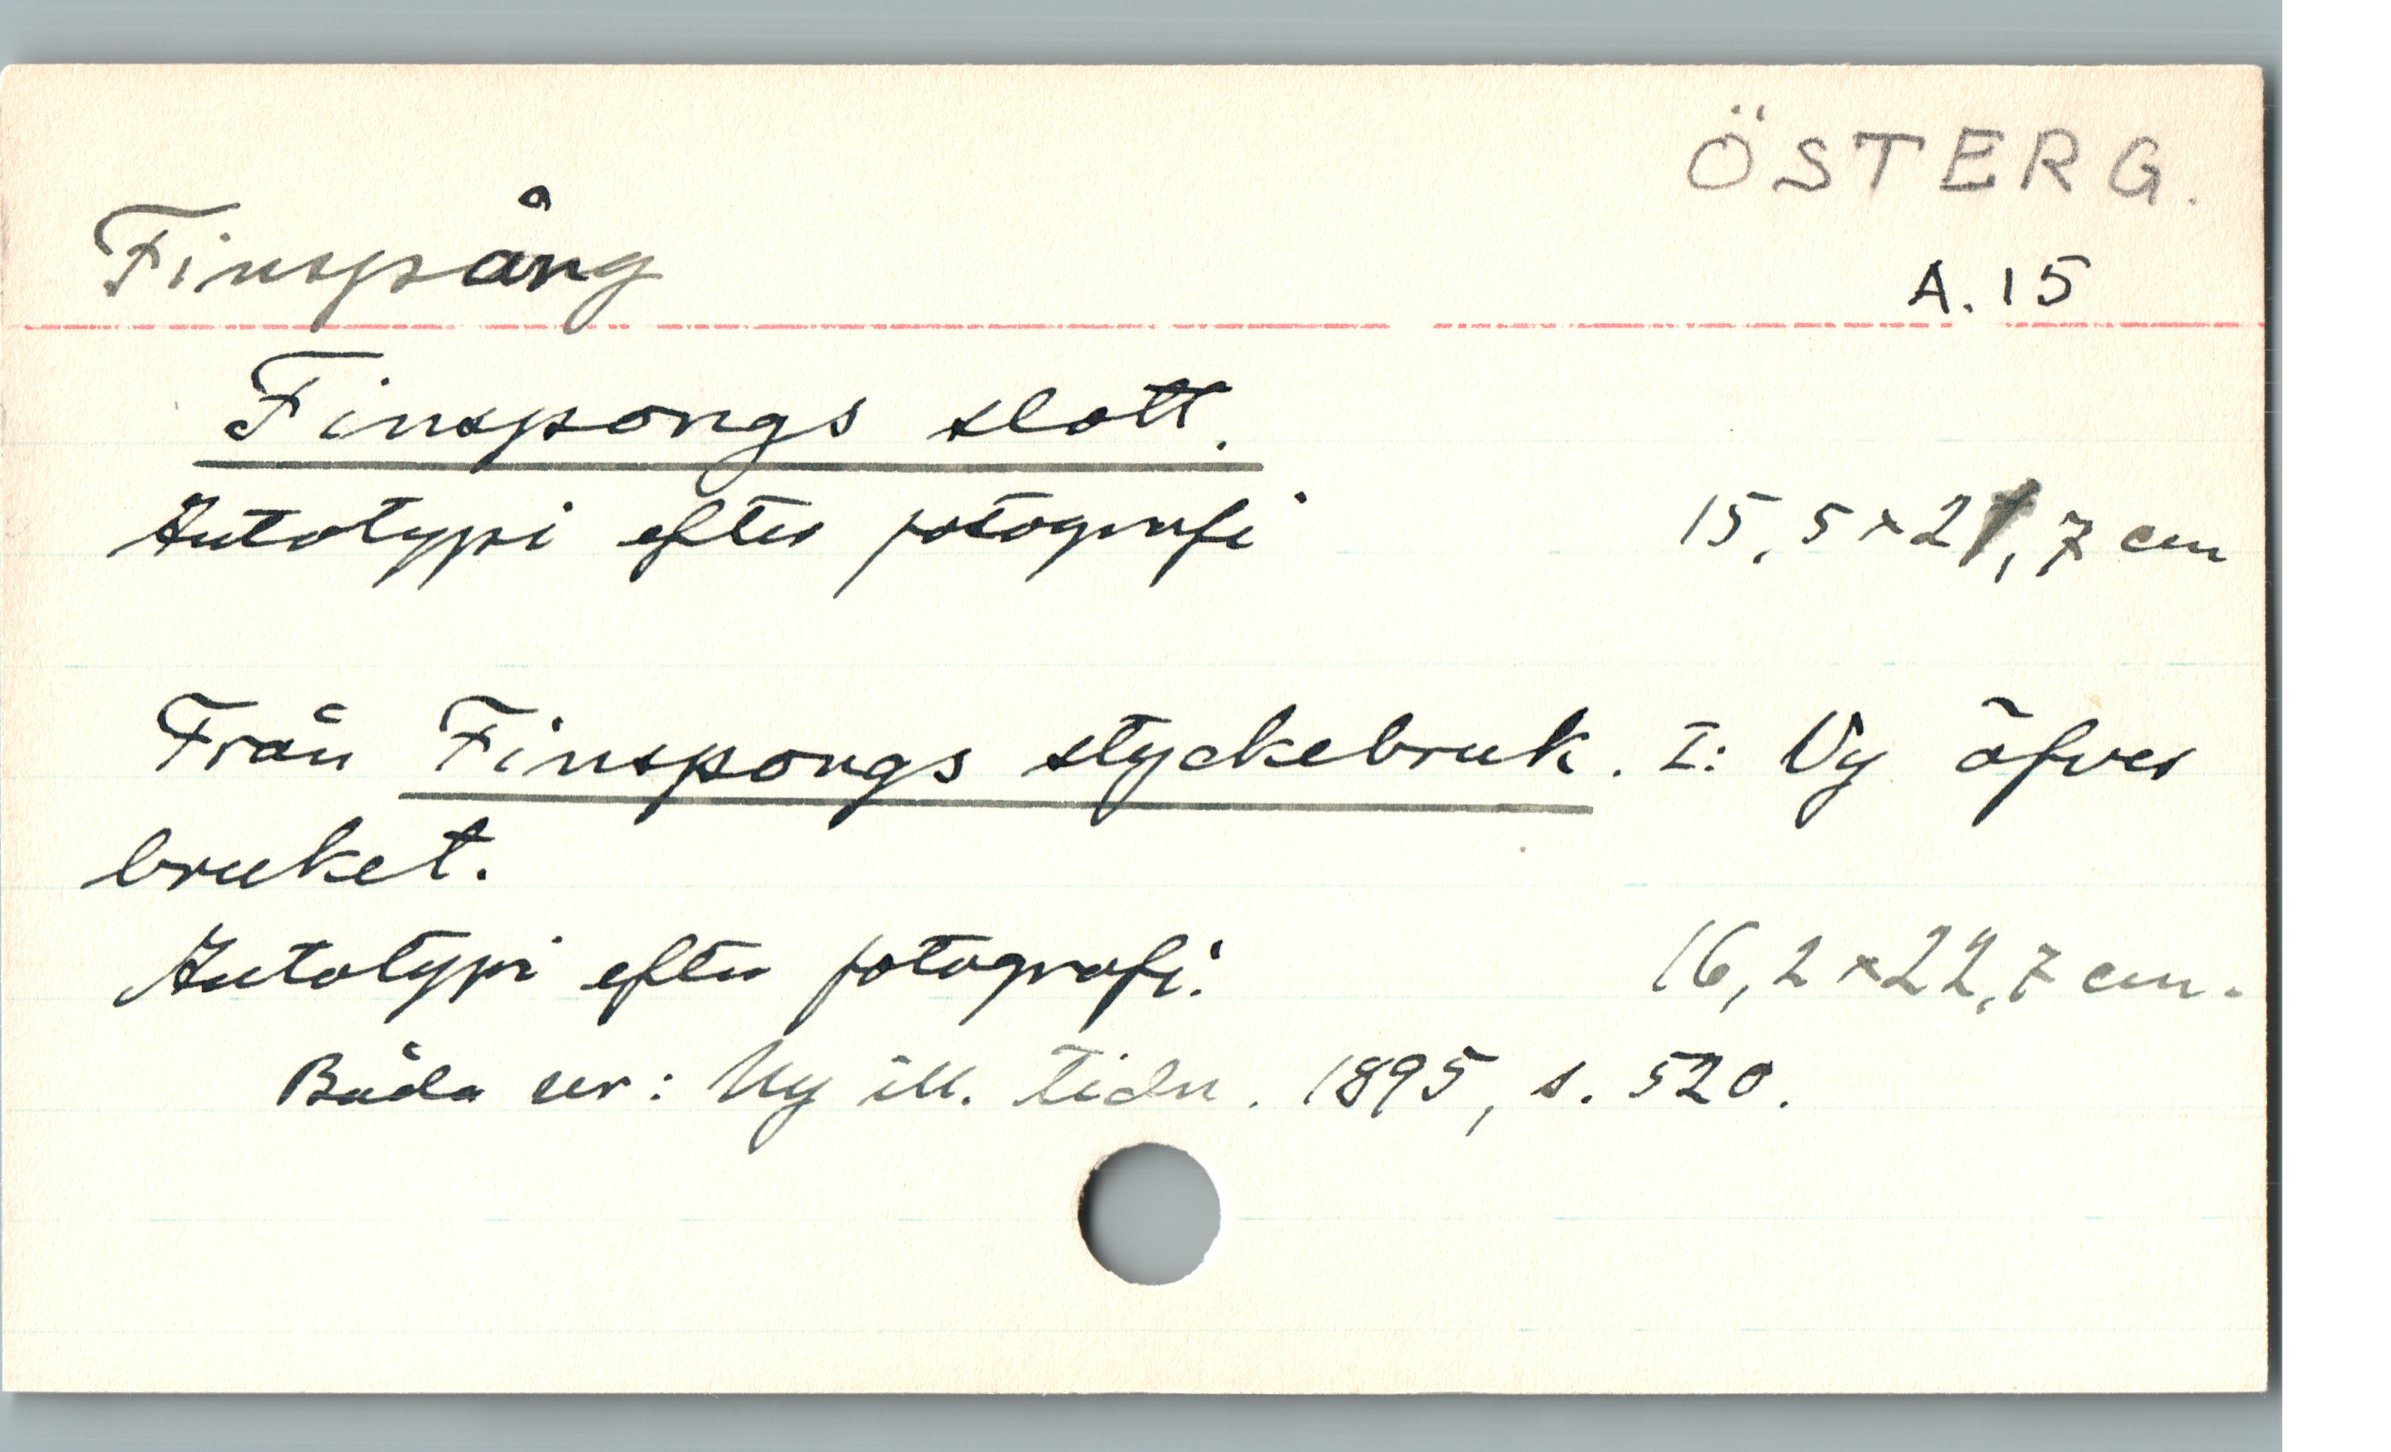 ÖSTERG.
Finspång
A. 15
Finspongs slott.
Autotypi efter fotografi 15,5 × 21,7 cm
Från Finspongs styckebruk. I: Vy öfver
bruket.
Autotypi efter fotografi. 16,2 × 22,7 cm.
Båda ur: Ny ill. Tidn. 1895, s. 520.